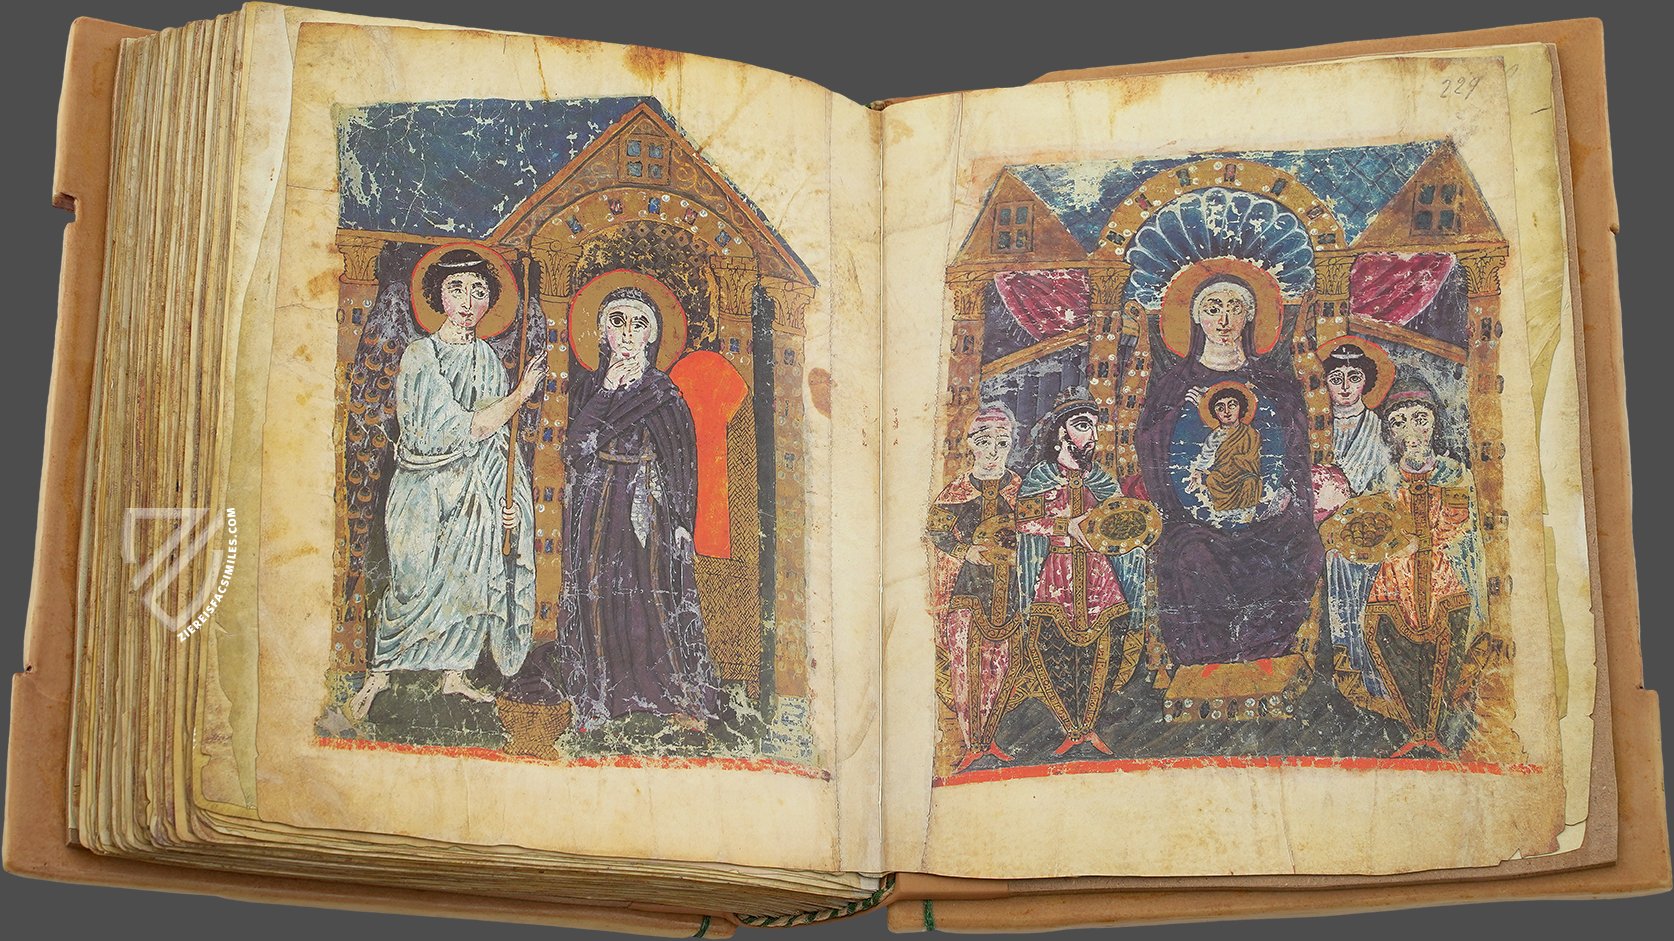 229
ZIEREISFACSIMILES.COM